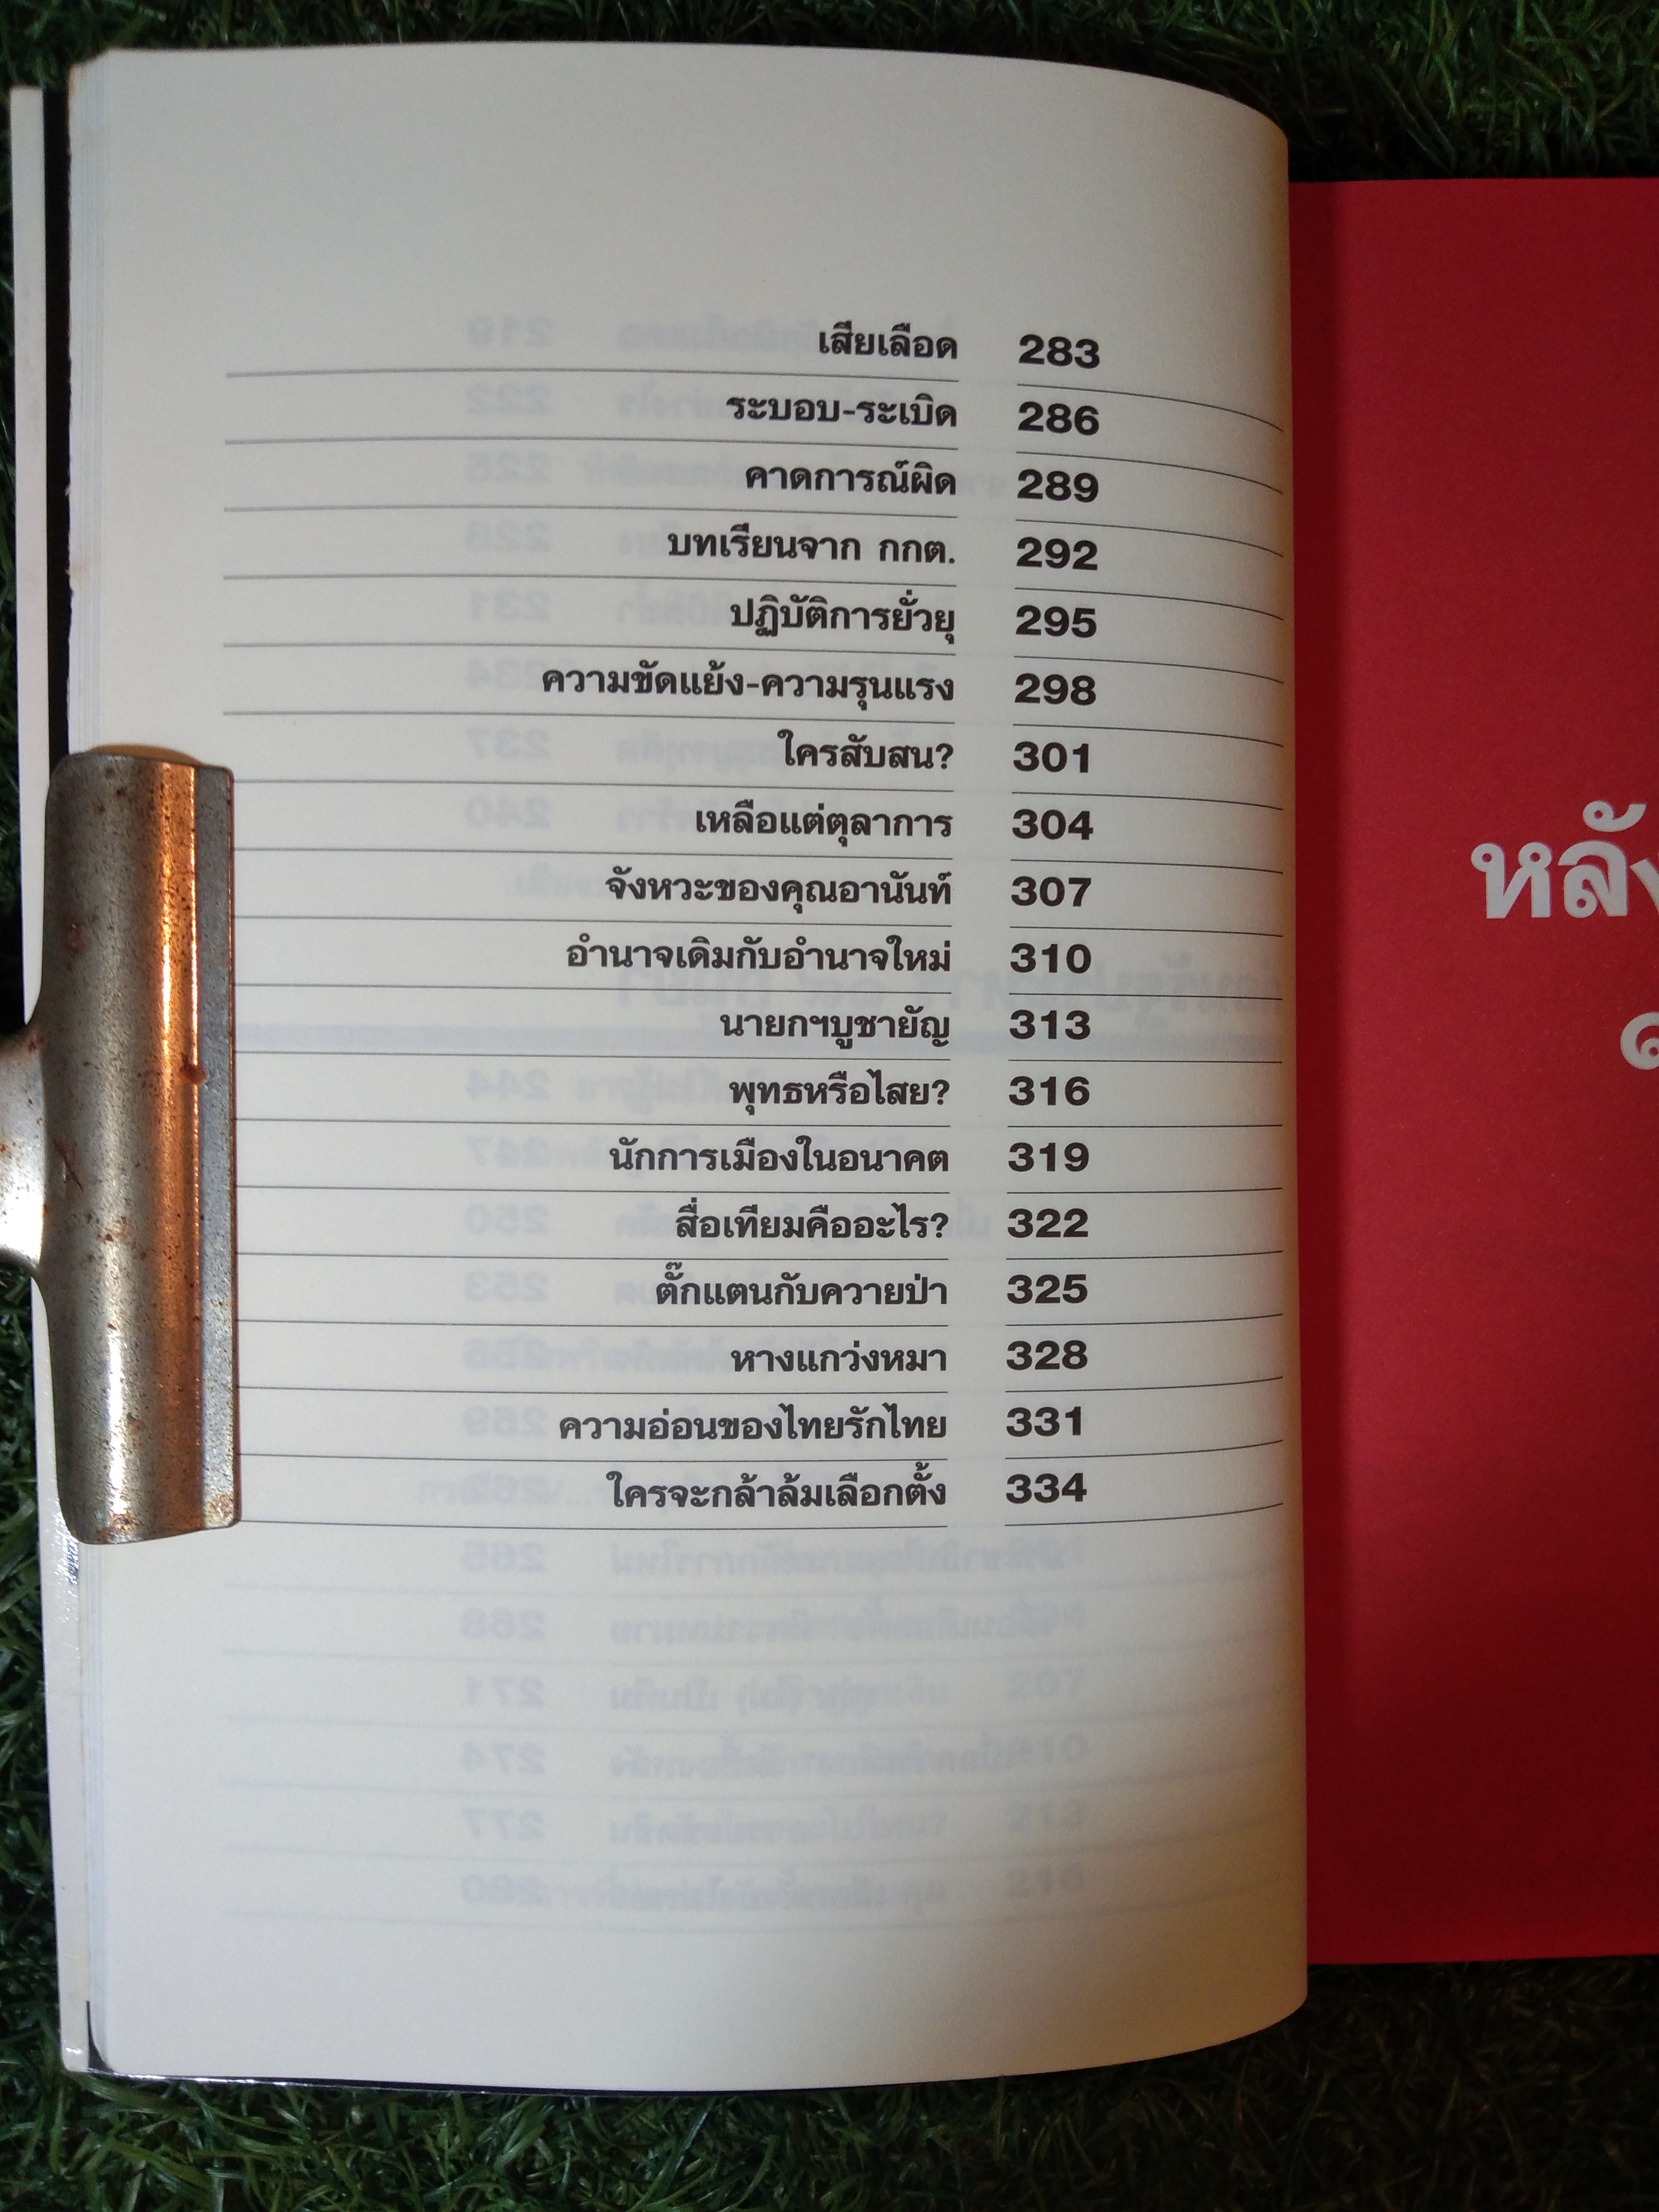 เสียเลือด 283
ระบอบ-ระเบิด 286
คาดการณ์ผิด 289
บทเรียนจาก กกต. 292
ปฏิบัติการยั่วยุ 295
ความขัดแย้ง-ความรุนแรง 298
ใครสับสน? 301
เหลือแต่ตุลาการ 304
จังหวะของคุณอานันท์ 307
อำนาจเดิมกับอำนาจใหม่ 310
นายกฯบูชายัญ 313
พุทธหรือไสย? 316
นักการเมืองในอนาคต 319
สื่อเทียมคืออะไร? 322
ตั๊กแตนกับควายป่า 325
หางแกว่งหมา 328
ความอ่อนของไทยรักไทย 331
ใครจะกล้าล้มเลือกตั้ง 334